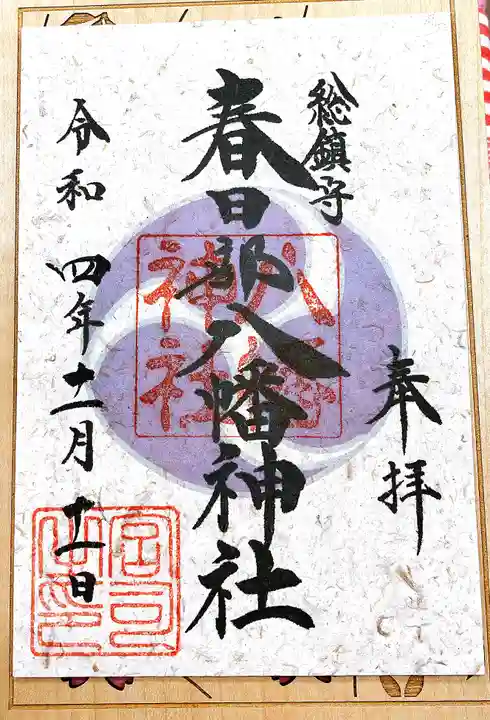 総鎮守
奉拝
春日部八幡神社
令和四年十一月十一日
八幡神社
宮司之印